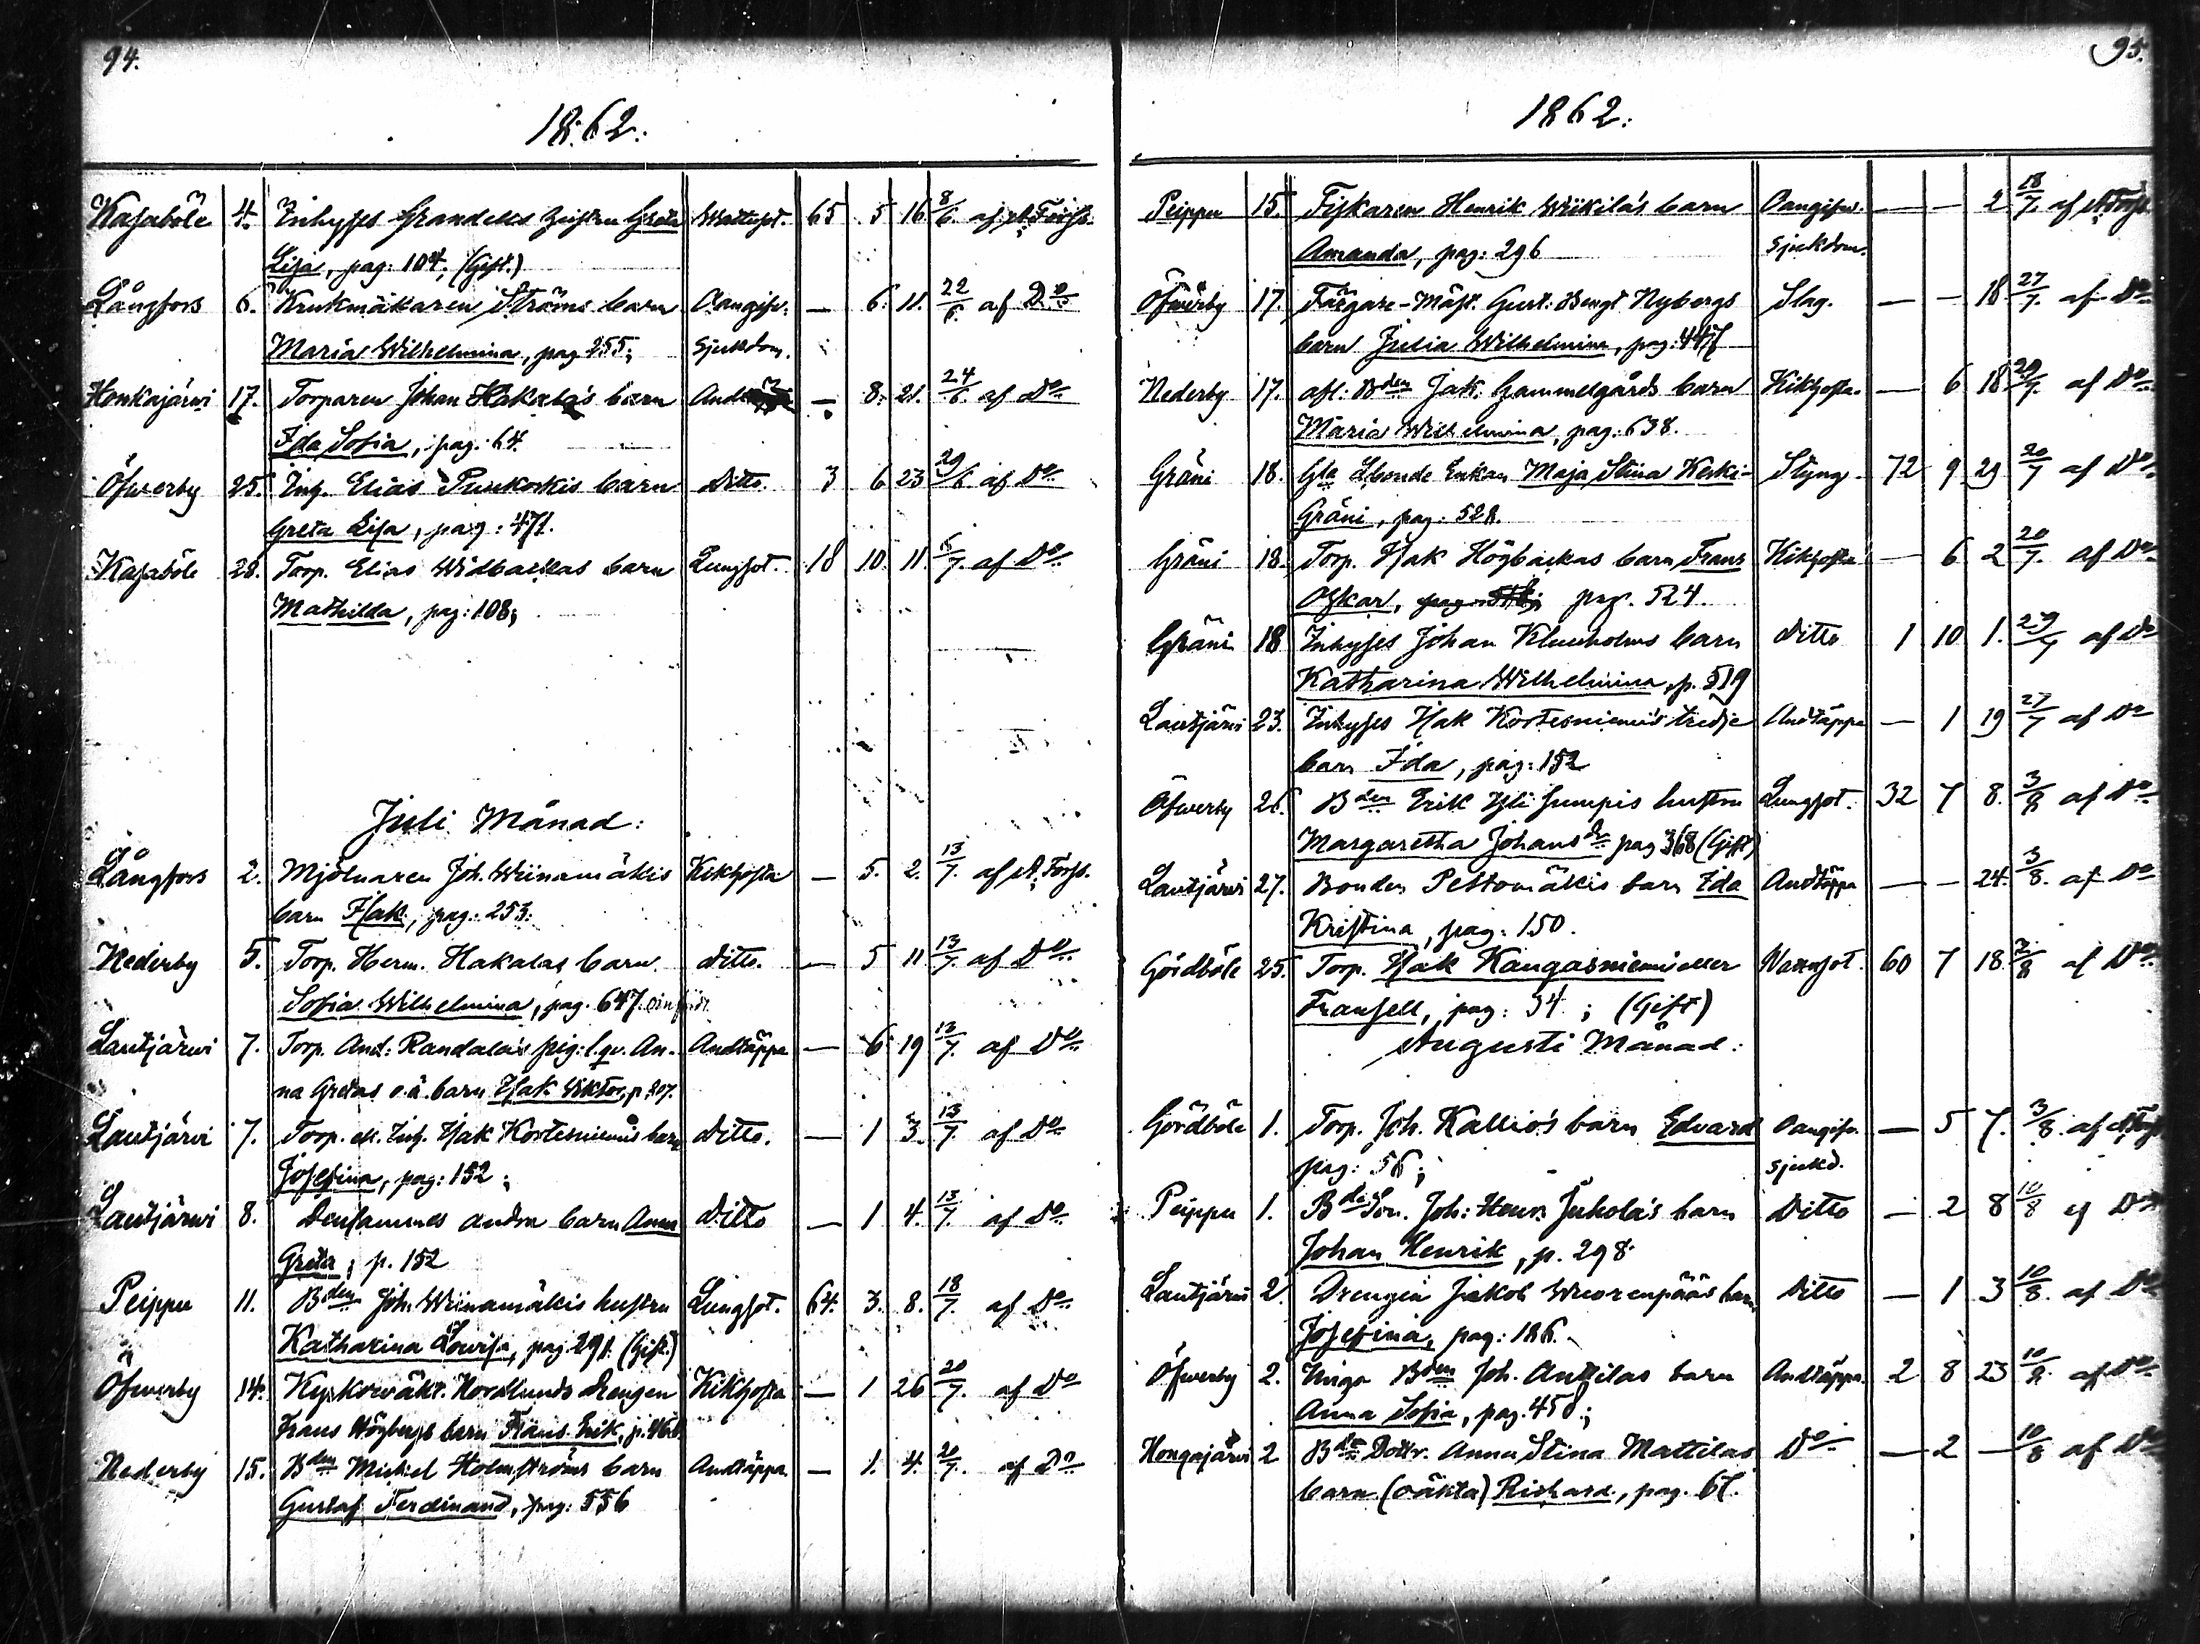 94.
1862.
Kasaböle 4. Inhyses Grandells hustru Greta Wattusot. 65 5 16 8/6. af A. Forss.
Lisa, pag: 104; (Gift.)
Långfors 6. Krukmakaren Ströms barn Oangifv. — 6. 11. 22/6. af Do
Maria Wilhelmina, pag 255; sjukdom.
Honkajärvi 17. Torparen Johan Hakala's barn — 8. 21. 24/6. af Do
Ida Sofia, pag: 64.
Öfwerby 25. Inh. Elias Puukoskis barn Ditto. 3 6 23 29/6. af Do
Greta Lisa, pag: 471.
Kasaböle 28. Torp. Elias Widbackas barn Lungsot. 18 10. 11. 5/7. af Do
Mathilda, pag: 108;
Juli Månad:
Långfors 2. Mjölnaren Joh. Wiinamäkis Kikhosta — 5. 2. 13/7. af A. Forss.
barn Isak, pag: 253.
Nederby 5. Torp. Herm. Hakalas barn ditto. — 5 11 13/7. af Do
Sofia Wilhelmina, pag. 647.
Lautjärwi 7. Torp. And: Randala's pig: l. qv. An- Andtäppa — 6 19 13/7. af Do
na Gretas o.ä. barn Isak Wiktor, p. 207.
Lautjärvi 7. Torp. el. Inh. Isak Kortesniemis barn ditto. — 1 3. 13/7. af Do
Josefina, pag: 152;
Lautjärwi 8. Densammes andra barn Anna ditto — 1 4. 13/7. af Do
Greta, p. 152
Peippu 11. Bden Joh. Wiinamäkis hustru Lungsot. 64. 3. 8. 18/7. af Do
Katharina Lowisa, pag 291. (Gift.)
Öfwerby 14. Kyrkowäkt. Nordlunds drengen Kikhosta — 1 26 20/7. af Do
Frans Högbergs barn Frans Erik, p. 468.
Nederby 15. Bden Mickel Holmströms barn Andtäppa — 1. 4. 20/7. af Do
Gustaf Ferdinand, pag: 556
95.
1862.
Peippu 15. Fiskaren Henrik Wiikilä's barn Oangifv. — — 2 18/7. af A. Forss.
Amanda, pag: 296 sjukdom.
Öfwerby 17. Färgare-Mäst. Gust: Bengt Nybergs Slag. — — 18 27/7. af Do
barn Julia Wilhelmina, pag: 447
Nederby 17. afl. Bden Jak. Gammelgårds barn Kikhosta. — 6 18 20/7. af Do
Maria Wilhelmina, pag: 638.
Gräni 18. Gla Åbonde Enkan Maja Stina Keski- Styng 72 9 29 20/7 af Do
Gräni, pag: 528.
Gräni 18. Torp. Isak Högbackas barn Frans Kikhosta — 6 2 20/7. af Do
Oskar, pag. 524.
Gräni 18 Inhyses Johan Klemholms barn ditto 1 10 1. 27/7 af Do
Katharina Wilhelmina, p. 519
Lautjärvi 23. Inhyses Isak Kortesniemi's tredje Andtäppa — 1 19 27/7 af Do
barn Ida, pag: 152
Öfwerby 26. Bden Erik Yli Jumpis hustru Lungsot. 32 7 8. 3/8 af Do
Margaretha Johansdr pag 368 (Gift)
Lautjärwi 27. Bonden Peltomäkis barn Ida Andtäppa — — 24. 3/8. af Do
Kristina, pag: 150.
Gördböle 25. Torp. Isak Kangasniemi eller Wattusot. 60 7 18. 3/8 af Do
Fransell, pag: 34.; (Gift)
Augusti Månad:
Gördböle 1. Torp. Joh. Kallio's barn Edvard Oangifv. — 5 7. 3/8. af A. Forss.
pag: 56; sjukd.
Peippu 1. Bde Son. Joh: Henr. Juhola's barn Ditto — 2 8 10/8 af Do
Johan Henrik, p. 298.
Lautjärvi 2. Drengen Jakob Wuorenpääs barn Ditto — 1 3 10/8. af Do
Josefina, pag: 186.
Öfwerby 2. Unga Bden Joh. Anttilas barn Andtäppa. 2 8 23 10/8. af Do
Anna Sofia, pag. 458;
Honqajärvi 2 Bde Dottr. Anna Stina Mattilas Do — 2 — 10/8 af Do
barn (oäkta) Richard, pag. 67.